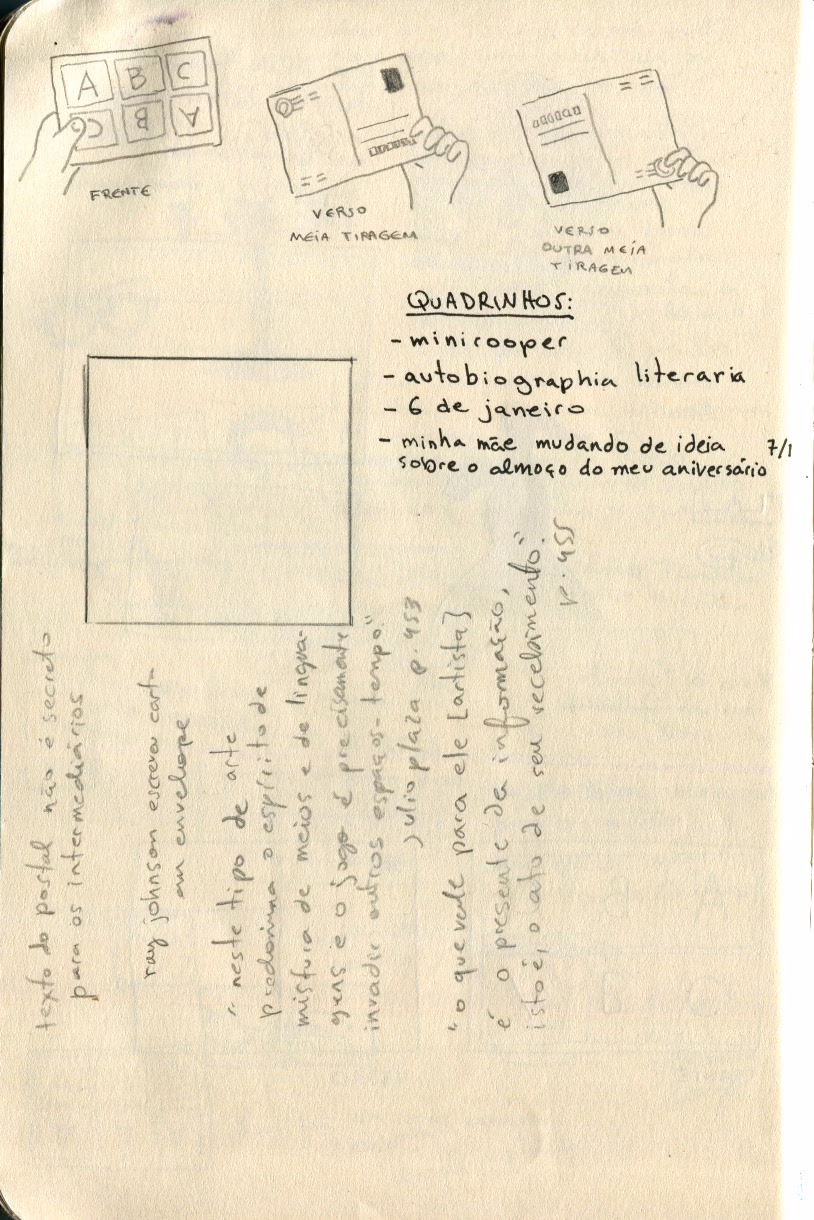 A B C
C B A
FRENTE
VERSO
MEIA TIRAGEM
VERSO
OUTRA MEIA
TIRAGEM
QUADRINHOS:
- minicooper
- autobiographia literaria
- 6 de janeiro
- minha mãe mudando de ideia 7/1
sobre o almoço do meu aniversário
texto do postal não é secreto
para os intermediários
ray johnson escreveu carta
em envelope
"neste tipo de arte
predomina o espírito de
mistura de meios e de lingua-
gens e o jogo é precisamente
invadir outros espaços-tempo".
julio plaza p. 453
"o que vale para ele [artista]
é o presente da informação,
isto é, o ato de seu recebimento".
p. 455